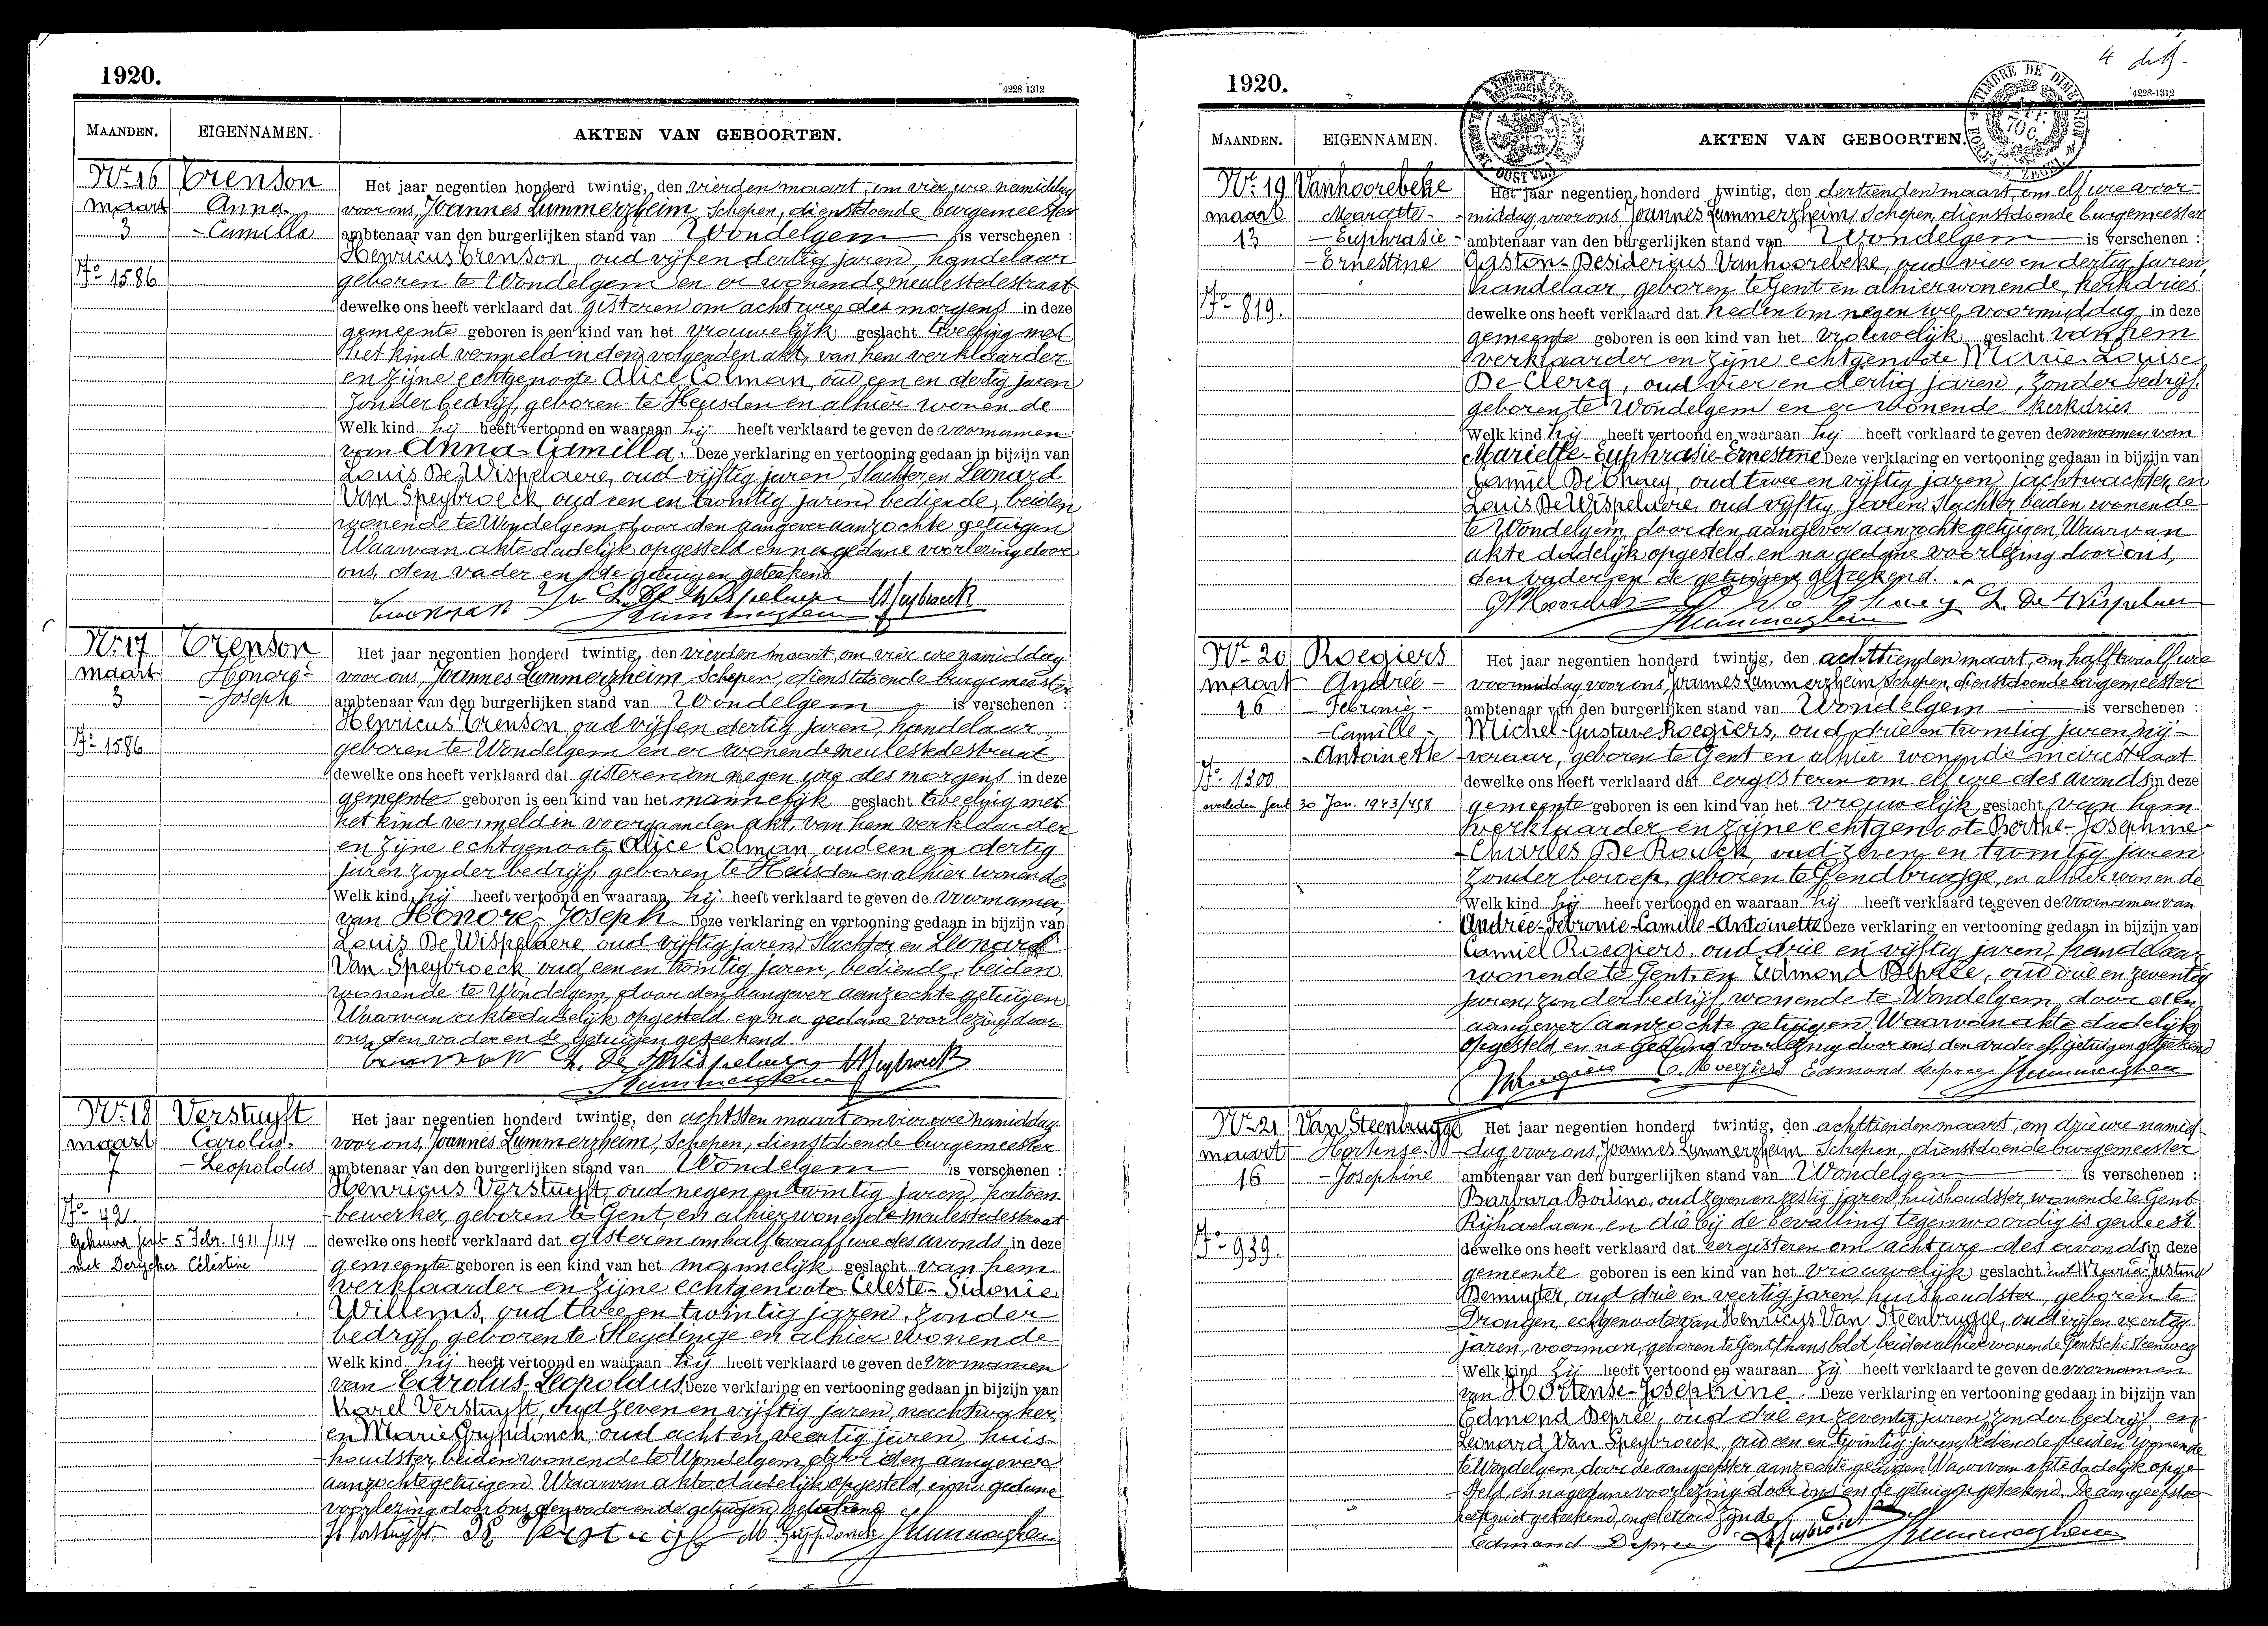 1920.
4228-1312
MAANDEN.
EIGENNAMEN.
AKTEN VAN GEBOORTEN.
Nr. 16
maart
3
Nº 1586
Crenson
Anna
-Camilla
Het jaar negentien honderd twintig, den vierden maart, om vier ure namiddag
voor ons, Joannes Lummerzheim, Schepen, dienstdoende burgemeester
ambtenaar van den burgerlijken stand van Wondelgem is verschenen :
Henricus Crenson, oud vijf en dertig jaren, handelaar
geboren te Wondelgem en er wonende, meulestedestraat
dewelke ons heeft verklaard dat gisteren om acht ure des morgens in deze
gemeente geboren is een kind van het vrouwelijk geslacht tweeling met
het kind vermeld in den volgenden akt, van hem verklaarder
en zijne echtgenoote Alice Colman, oud een en dertig jaren
zonder bedrijf, geboren te Heusden en alhier wonende
Welk kind hij heeft vertoond en waaraan hij heeft verklaard te geven de voornamen
van Anna-Camilla. Deze verklaring en vertooning gedaan in bijzijn van
Louis De Wispelaere, oud vijftig jaren, Slachter en Leonard
Van Speybroeck, oud een en twintig jaren, bediende, beiden
wonende te Wondelgem, door den aangever aanzochte getuigen
Waarvan akte dadelijk opgesteld en na gedane voorlezing door
ons, den vader en de getuigen geteekend
L. De Wispelaere
Nr. 17
maart
3
Nº 1586
Crenson
Honoré-
-Joseph
Het jaar negentien honderd twintig, den vierden maart, om vier ure namiddag
voor ons, Joannes Lummerzheim, Schepen, dienstdoende burgemeester
ambtenaar van den burgerlijken stand van Wondelgem is verschenen :
Henricus Crenson, oud vijf en dertig jaren, handelaar,
geboren te Wondelgem en er wonende meulestedestraat
dewelke ons heeft verklaard dat gisteren om negen ure des morgens in deze
gemeente geboren is een kind van het mannelijk geslacht tweeling met
het kind vermeld in voorgaanden akt, van hem verklaarder
en zijne echtgenoote Alice Colman, oud een en dertig
jaren zonder bedrijf, geboren te Heusden en alhier wonende
Welk kind hij heeft vertoond en waaraan hij heeft verklaard te geven de voornamen
van Honoré-Joseph. Deze verklaring en vertooning gedaan in bijzijn van
Louis De Wispelaere, oud vijftig jaren, Slachter en Leonard
Van Speybroeck, oud een en twintig jaren, bediende, beiden
wonende te Wondelgem, door den aangever aanzochte getuigen
Waarvan akte dadelijk opgesteld en na gedane voorlezing door
ons, den vader en de getuigen geteekend
L. De Wispelaere
Nr. 18
maart
7
Nº 42.
Gehuwd Gent 5 Febr. 1911/114
met Derycker Célestine
Verstuyft
Carolus-
-Leopoldus
Het jaar negentien honderd twintig, den achtsten maart om vier ure namiddag
voor ons, Joannes Lummerzheim, Schepen, dienstdoende burgemeester
ambtenaar van den burgerlijken stand van Wondelgem is verschenen :
Henricus Verstuyft, oud negen en twintig jaren, katoen-
-bewerker, geboren te Gent, en alhier wonende meulestedestraat
dewelke ons heeft verklaard dat gisteren om half twaalf ure des avonds, in deze
gemeente geboren is een kind van het mannelijk geslacht van hem
verklaarder en zijne echtgenoote Celeste-Sidonie
Willems, oud twee en twintig jaren, zonder
bedrijf, geboren te Sleydinge en alhier wonende
Welk kind hij heeft vertoond en waaraan hij heeft verklaard te geven de voornamen
van Carolus-Leopoldus. Deze verklaring en vertooning gedaan in bijzijn van
Karel Verstuyft, oud zeven en vijftig jaren, nachtwaker,
en Marie Grypdonck, oud acht en veertig jaren, huis-
-houdster, beiden wonende te Wondelgem, door den aangever
aanzochte getuigen. Waarvan akte dadelijk opgesteld, en na gedane
voorlezing door ons, den vader en de getuigen geteekend
1920.
4 deB.
4228-1312
TIMBRE DE DIMENSION
MAANDEN.
EIGENNAMEN.
AKTEN VAN GEBOORTEN.
Nr. 19
maart
13
Nº 819.
Vanhoorebeke
Mariette-
-Euphrasie-
-Ernestine
Het jaar negentien honderd twintig, den dertienden maart, om elf ure voor-
-middag, voor ons, Joannes Lummerzheim, Schepen, dienstdoende burgemeester
ambtenaar van den burgerlijken stand van Wondelgem is verschenen :
Gaston-Desiderius Vanhoorebeke, oud vier en dertig jaren,
handelaar, geboren te Gent en alhier wonende, kerkdries
dewelke ons heeft verklaard dat heden om negen ure voormiddag, in deze
gemeente geboren is een kind van het vrouwelijk geslacht van hem
verklaarder en zijne echtgenoote Marie-Louise
De Clercq, oud vier en dertig jaren, zonder bedrijf,
geboren te Wondelgem en er wonende kerkdries
Welk kind hij heeft vertoond en waaraan hij heeft verklaard te geven de voornamen van
Mariette-Euphrasie-Ernestine. Deze verklaring en vertooning gedaan in bijzijn van
Camiel De Ghaey, oud twee en vijftig jaren, jachtwachter, en
Louis De Wispelaere, oud vijftig jaren, Slachter, beiden wonende
te Wondelgem, door den aangever aanzochte getuigen, Waarvan
akte dadelijk opgesteld, en na gedane voorlezing door ons,
den vader en de getuigen geteekend.
L. De Wispelaere
Nr. 20
maart
16
Nº 1300
overleden Gent 30 Jan. 1943/498
Roegiers
Andrée-
-Febronie-
-Camille-
-Antoinette
Het jaar negentien honderd twintig, den achttienden maart, om half twaalf ure
voormiddag voor ons, Joannes Lummerzheim, Schepen, dienstdoende burgemeester
ambtenaar van den burgerlijken stand van Wondelgem is verschenen :
Michel-Gustave Roegiers, oud drie en twintig jaren, nij-
-veraar, geboren te Gent en alhier wonende meirestraat
dewelke ons heeft verklaard dat eergisteren om elf ure des avonds, in deze
gemeente geboren is een kind van het vrouwelijk geslacht van hem
verklaarder en zijne echtgenoote Berthe-Josephine-
-Charles De Rouck, oud zeven en twintig jaren
zonder beroep, geboren te Gendbrugge, en alhier wonende
Welk kind hij heeft vertoond en waaraan hij heeft verklaard te geven de voornamen van
Andrée-Febronie-Camille-Antoinette Deze verklaring en vertooning gedaan in bijzijn van
Camiel Roegiers, oud drie en vijftig jaren, handelaar,
wonende te Gent, en Edmond Deprée, oud drie en zeventig
jaren, zonder bedrijf, wonende te Wondelgem, door den
aangever aanzochte getuigen, Waarvan akte dadelijk
opgesteld, en na gedane voorlezing door ons, den vader en getuigen geteekend
C. Roegiers Edmond Deprée
Nr. 21
maart
16
Nº 939
Van Steenbrugge
Hortense-
-Josephine
Het jaar negentien honderd twintig, den achttienden maart, om drie ure namid-
-dag, voor ons, Joannes Lummerzheim, Schepen, dienstdoende burgemeester
ambtenaar van den burgerlijken stand van Wondelgem is verschenen :
Barbara Bodino, oud zeven en zestig jaren, huishoudster, wonende te Gent
Rijhovelaan, en die bij de bevalling tegenwoordig is geweest
dewelke ons heeft verklaard dat eergisteren om acht ure des avonds in deze
gemeente geboren is een kind van het vrouwelijk geslacht uit Marie-Justina
Demuyter, oud drie en veertig jaren, huishoudster, geboren te
Drongen, echtgenoote van Henricus Van Steenbrugge, oud vijf en veertig
jaren, voorman, geboren te Gent, thans belet, beiden alhier wonende Gentsche Steenweg
Welk kind zij heeft vertoond en waaraan zij heeft verklaard te geven de voornamen
van Hortense-Josephine. Deze verklaring en vertooning gedaan in bijzijn van
Edmond Deprée, oud drie en zeventig jaren, zonder bedrijf, en
Leonard Van Speybroeck, oud een en twintig jaren, bediende, beiden wonende
te Wondelgem, door de aangeefster aanzochte getuigen Waarvan akte dadelijk opge-
-steld, en na gedane voorlezing door ons en de getuigen geteekend. De aangeefster
heeft niet geteekend, ongeletterd zijnde.
Edmond Deprée